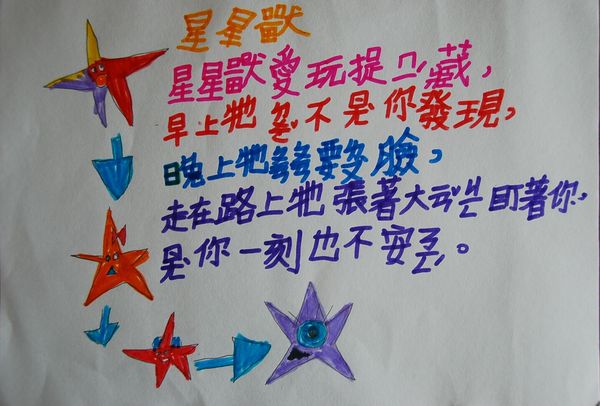 星星獸
星星獸愛玩捉ㄇㄧˊ藏，
早上牠不是你發現，
晚上牠要臉，
走在路上牠張著大盯著你，
是你一刻也不安。